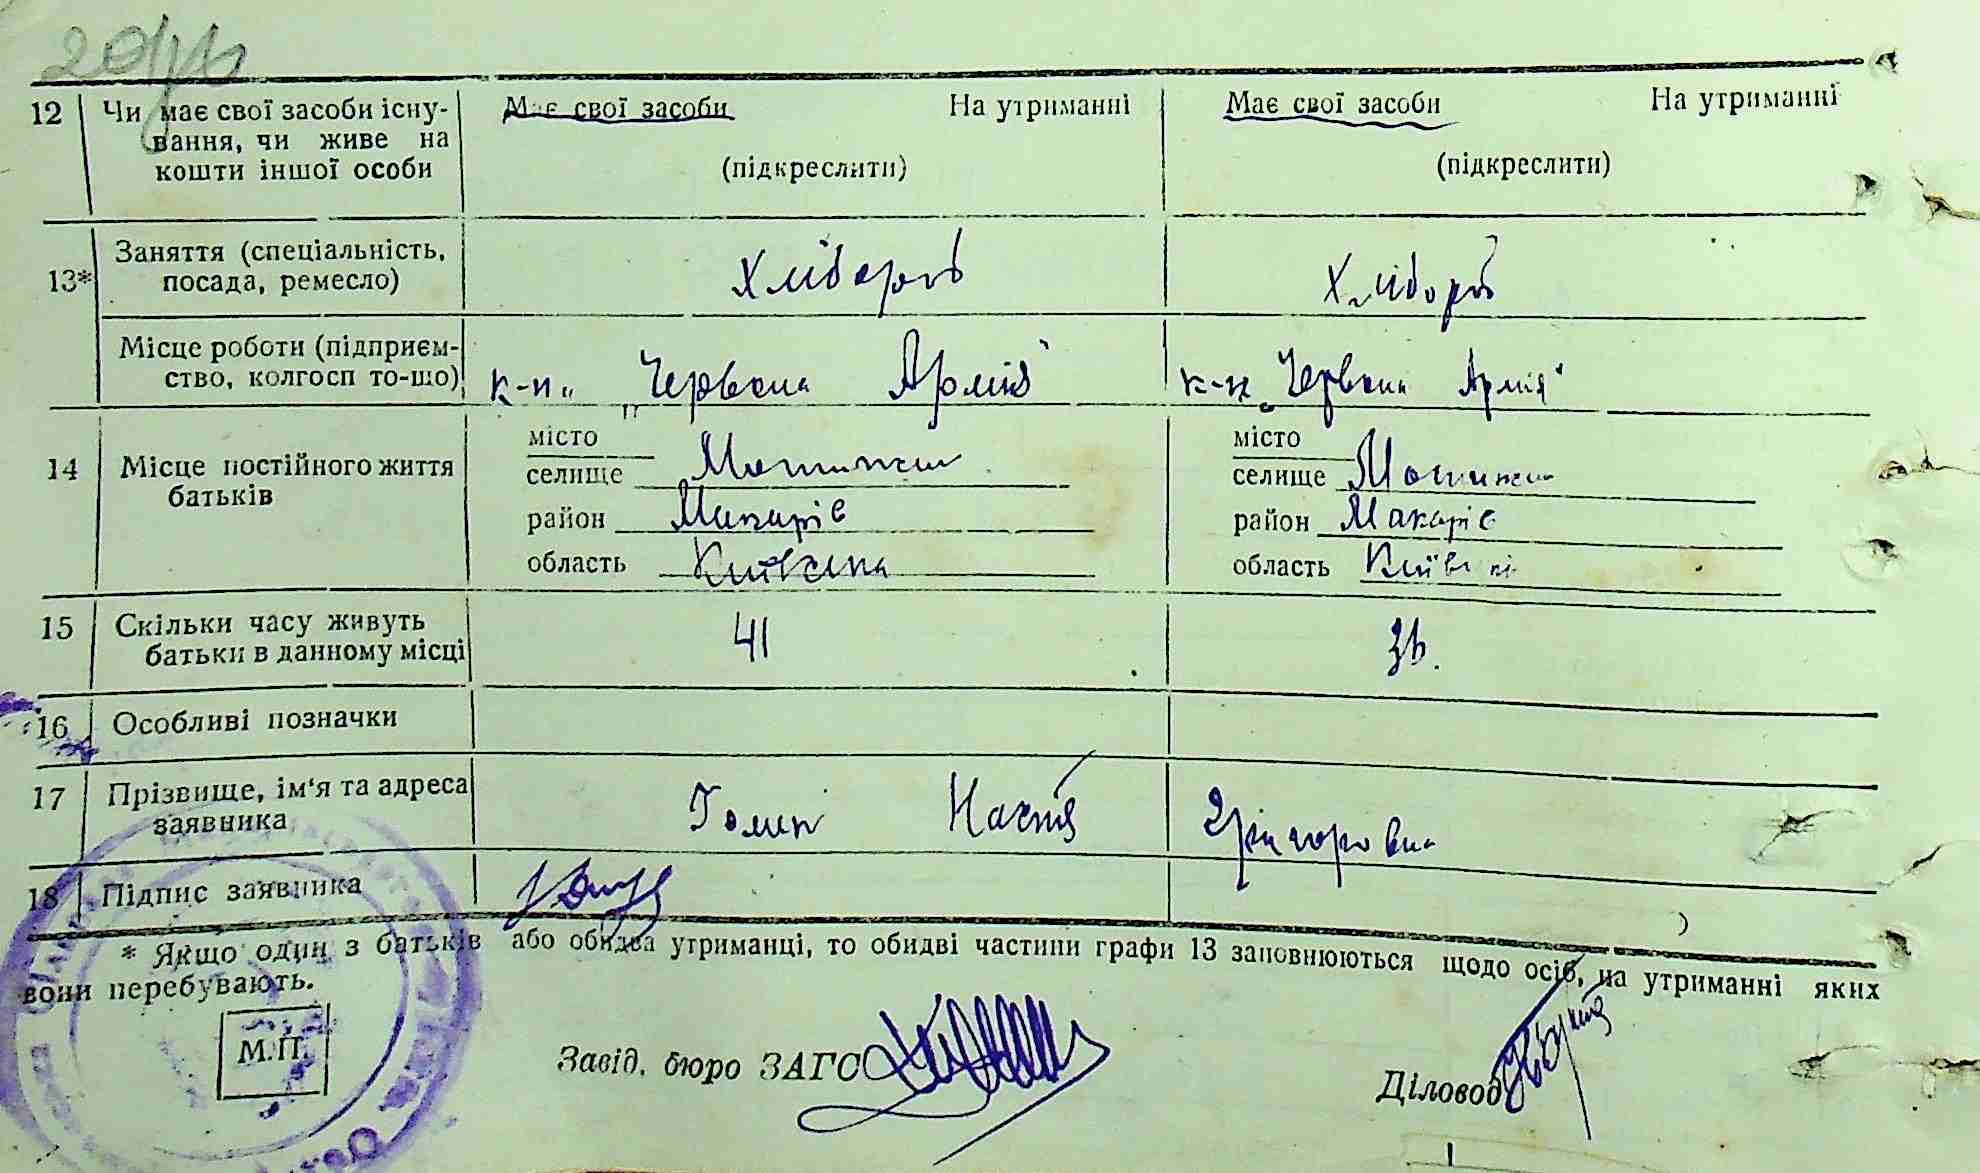 12 Чи має свої засоби існу- Має свої засоби На утриманні Має свої засоби На утриманні
вання, чи живе на
кошти іншої особи (підкреслити) (підкреслити)
13* Заняття (спеціальність, Хлібороб Хлібороб
посада, ремесло)
Місце роботи (підприєм- к-п „Червона Армія" к-п „Червона Армія"
ство, колгосп то-що)
14 Місце постійного життя місто місто
батьків селище Мотижин селище Мотижин
район Макарів район Макарів
область Київська область Київськ
15 Скільки часу живуть 41
батьки в данному місці
16 Особливі позначки
17 Прізвище, ім'я та адреса Настя Григоровна
заявника
18 Підпис заявника
* Якщо один з батьків або обидва утриманці, то обидві частини графи 13 заповнюються щодо осіб, на утриманні яких
вони перебувають.
М.П.
Завід. бюро ЗАГС Діловод